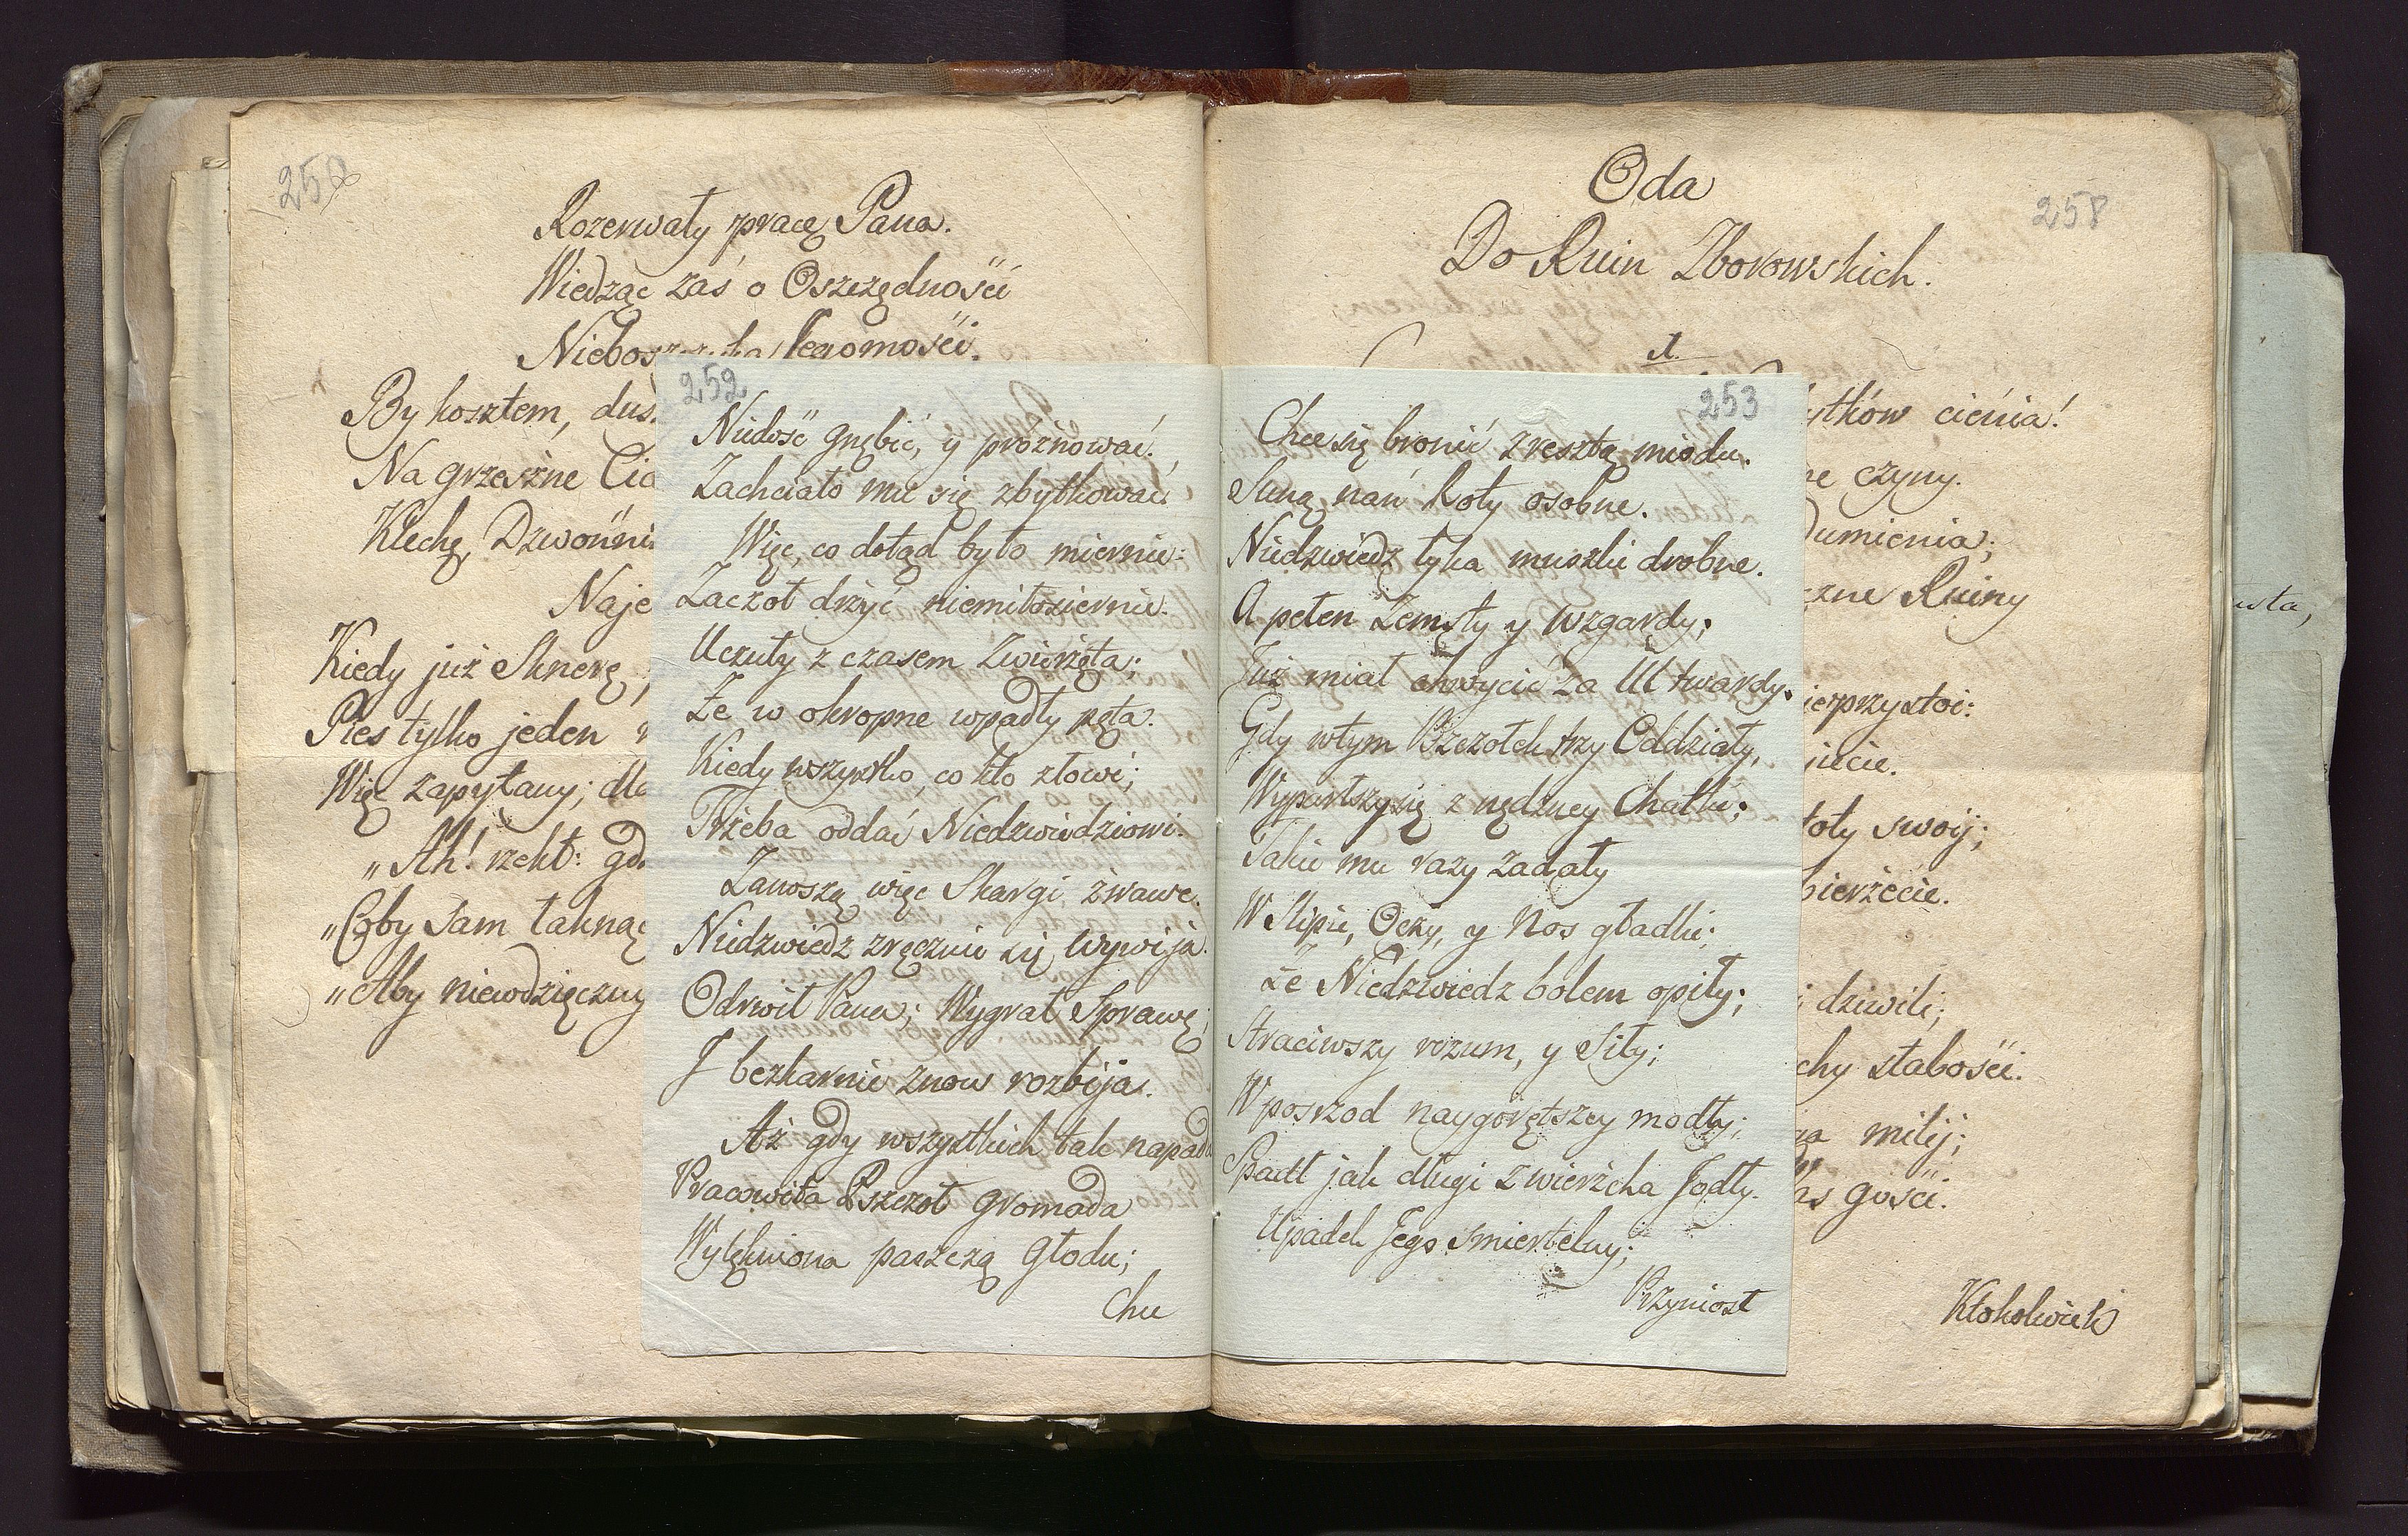 250
Rozerwały pracę Pana.
Wiedząc zaś o Oszczędności
Jegomości.
By kosztem,
Na grzeszne
Klechę,
Kiedy już Sknerę
Pies tylko jeden
Więc zapytany;
„Ah! rzekł:
„Coby sam łaknąc
„Aby niewdzięczny
252
Niedość gnębić, y próżnować;
Zachciało mu się zbytkować
Więc, co dotąd było miernie:
Zaczoł drżyć niemiłosiernie.
Uczuły z czasem Zwierzęta;
Że w okropne wpadły pęta.
Kiedy wszystko, co kto złowi;
Trzeba oddać Niedzwiedziowi.
Zanoszą więc Skargi żwawe.
Niedzwiedz zręcznie się wywija.
Odrwił Pana; Wygrał Sprawę;
I bezkarnie znow rozbija.
Aż gdy wszystkich tak napada
Pracowita Pszczoł gromada
Wylękniona paszczą Głodu;
Chce
253
Chce się bronić z resztą miodu.
Suną nań Roty osobne.
Niedzwiedz łyka muszki drobne.
A pełen Zemsty y Wzgardy;
Już miał chwycić za Ul twardy.
Gdy wtym Pszczołek trzy Oddziały,
Wyparłszy się z nędzney Chatki;
Takie mu razy zadały
W Slipie, Oczy, y Nos gładki;
Że Niedzwiedz bolem opiły;
Straciwszy rozum, y Siły;
W posrzod naygorętszey modły;
Spadł jak długi z wierzcha Jodły.
Upadek Jego Smiertelny;
Przyniosł
258
Oda
Do Ruin Zborowskich.
1.
cienia!
czyny.
Ruiny
swoij;
dziwili;
słabości.
milij;
gości.
Ktokolwiek